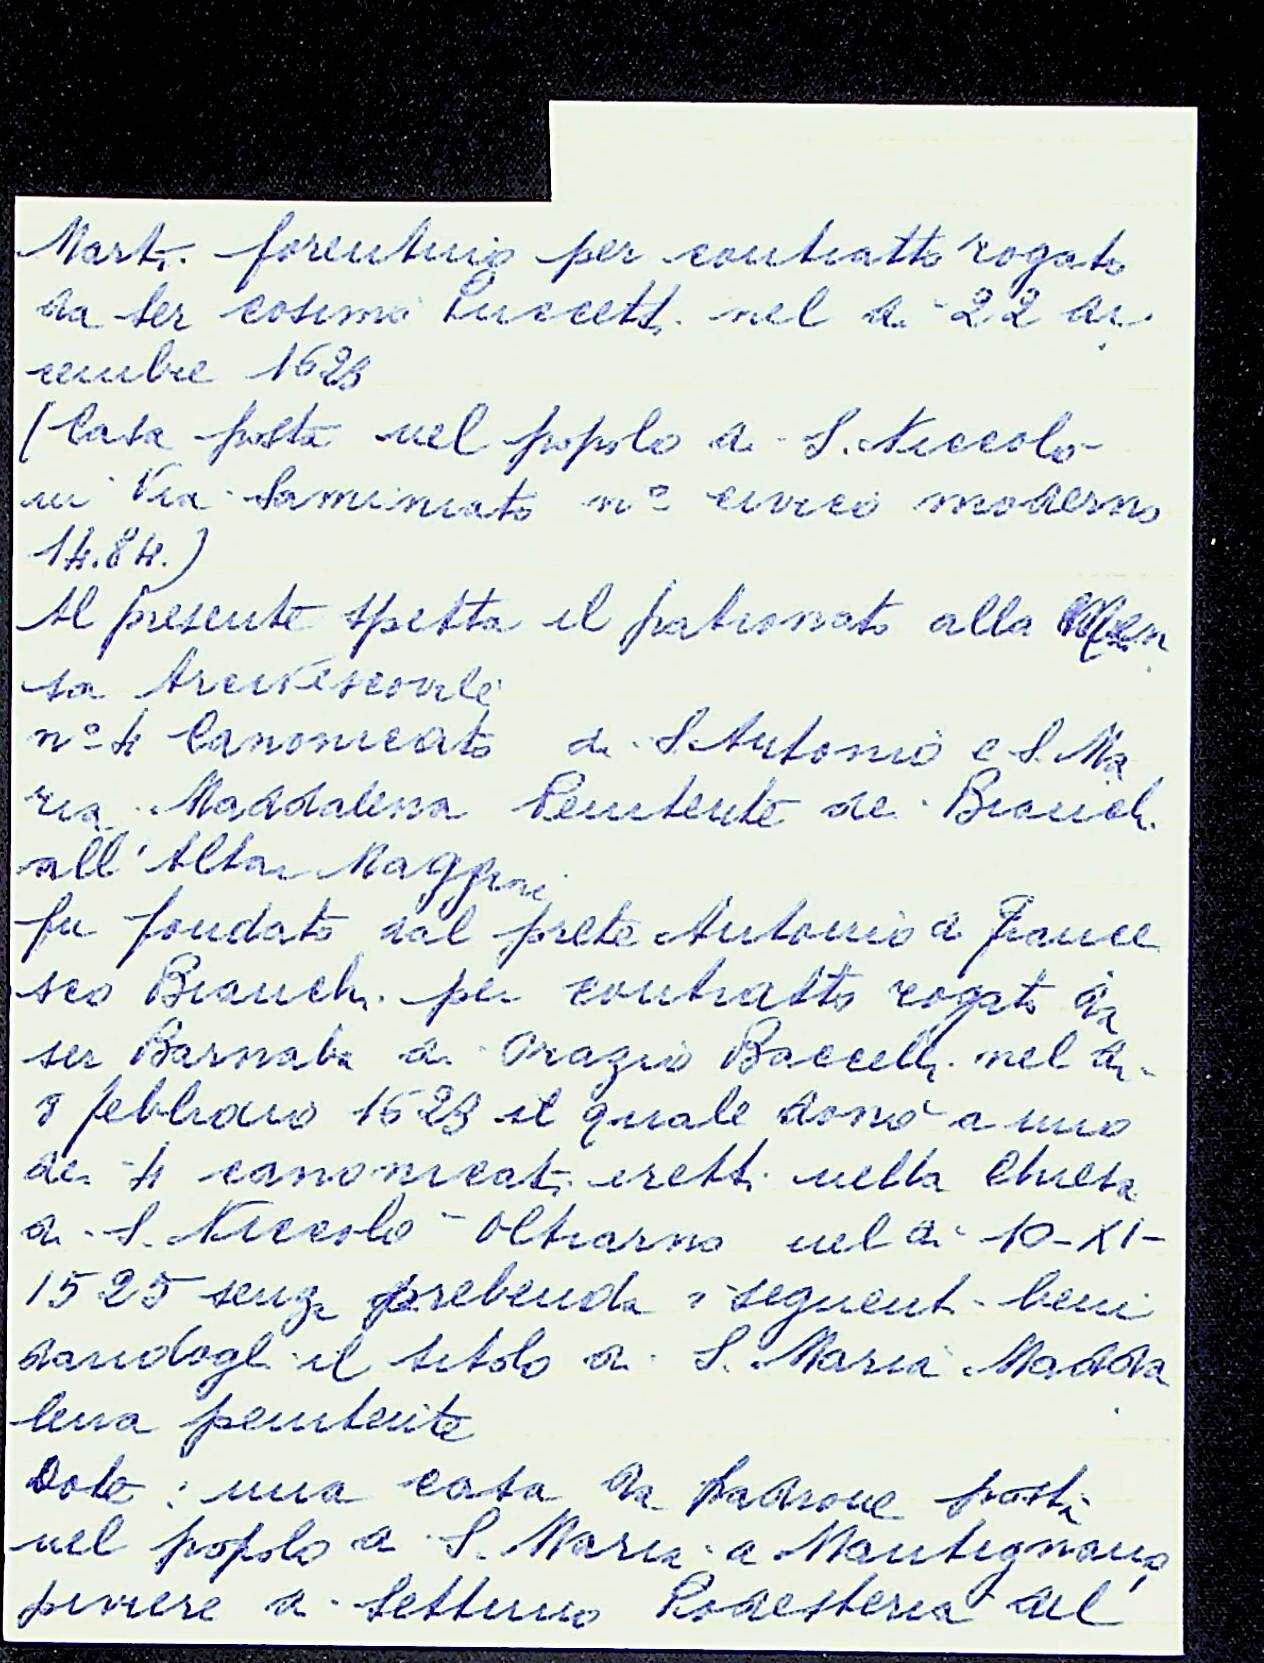 Marti. fiorentino per contratto rogato
da ser cosimo Puccetti nel di 22 di
cembre 1623
(Casa posta nel popolo di S. Niccolò
in Via Saminiato nº civico moderno
1484.)
Al presente spetta il patronato alla Men
sa Arcivescovile
nº 4 Canonicato di S. Antonio e S. Ma
ria Maddalena Penitente de Bianchi
all'Altar Maggiore
fu fondato dal prete Antonio di France
sco Bianchi per contratto rogato da
ser Barnaba di Orazio Baccelli nel di
8 febbraio 1623 il quale donò a uno
dei 4 canonicati eretti nella Chiesa
di S. Niccolò Oltrarno nel di 10-XI-
1525 senza prebenda i seguenti beni
dandogli il titolo di S. Maria Madda
lena penitente
Dote: una casa da padrone posta
nel popolo di S. Maria a Mantignano,
piviere di Settimo Podesteria del